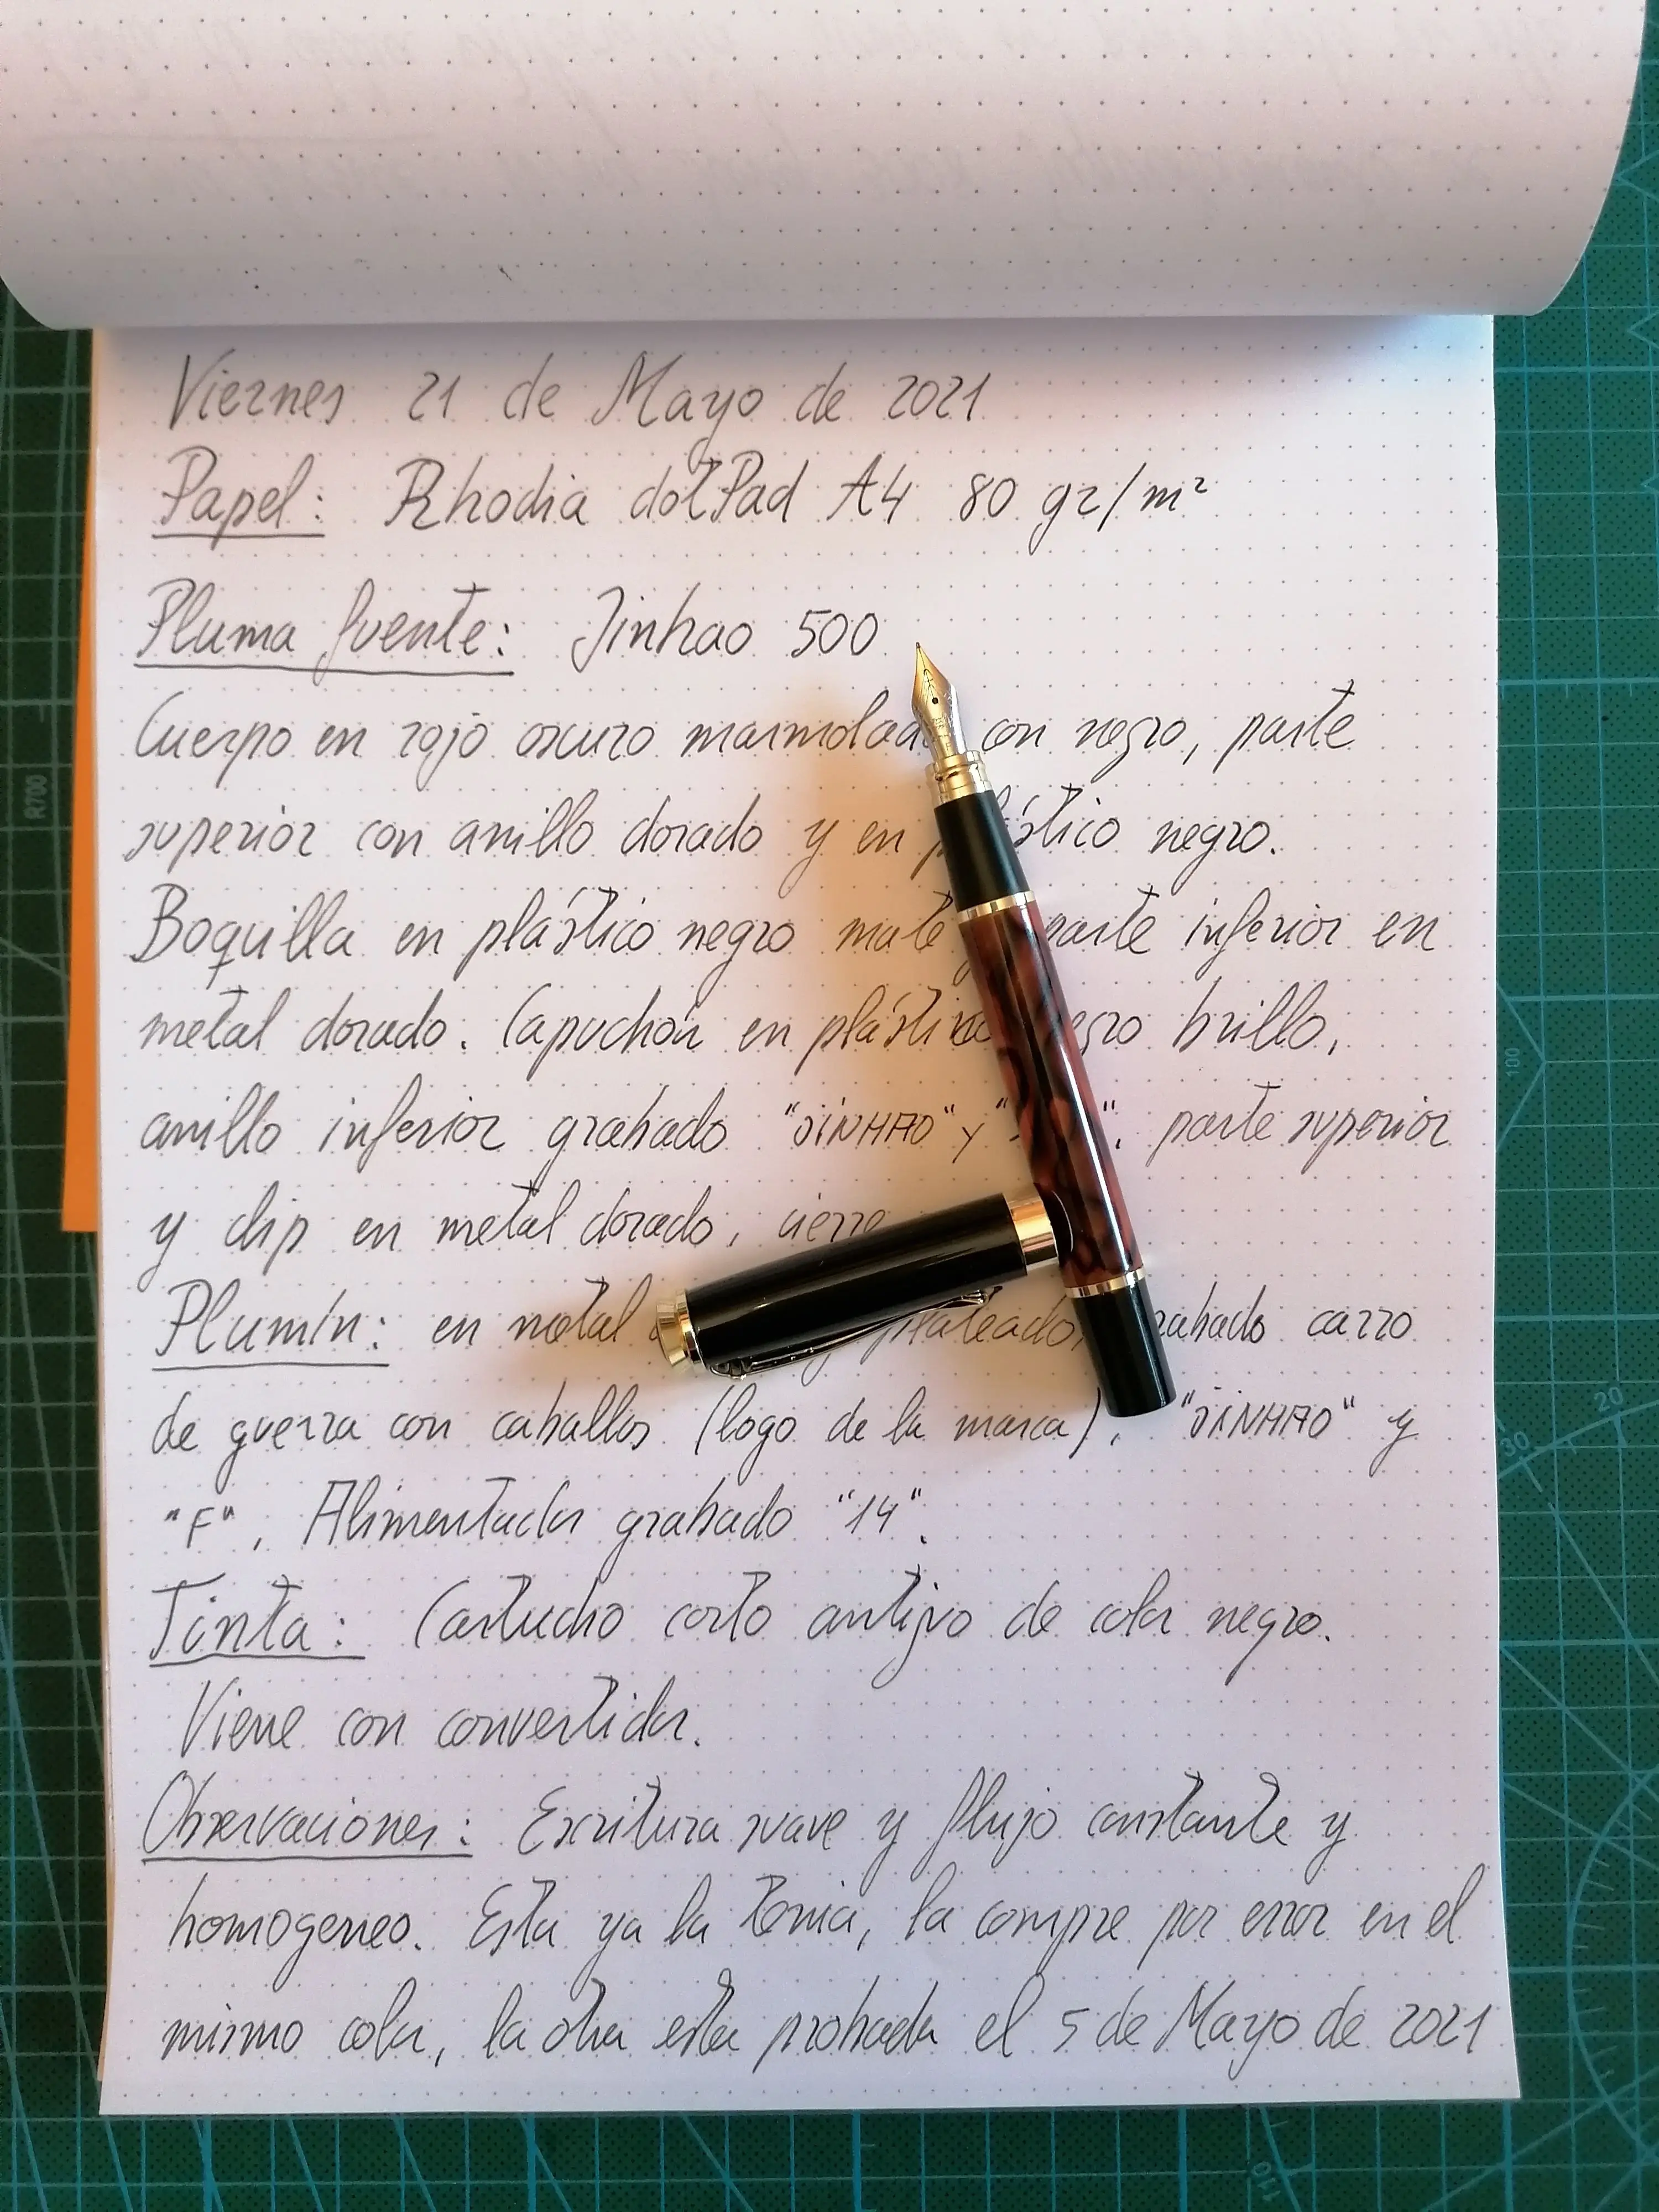 Viernes 21 de Mayo de 2021
Papel: Rhodia dotPad A4 80 gr/m²
Pluma fuente: Jinhao 500
Cuerpo en rojo oscuro con negro, parte
superior con anillo dorado y en negro.
Boquilla en plástico negro mate parte inferior en
metal dorado. Capuchón en plástico brillo,
anillo inferior grabado "JINHAO" y parte superior
y clip en metal dorado, cierre
Plumín: en metal plateado, grabado carro
de guerra con caballos (logo de la marca), "JINHAO" y
"F". Alimentador grabado "14".
Tinta: Cartucho corto antiguo de color negro.
Viene con convertidor.
Observaciones: Escritura suave y flujo constante y
homogeneo. Esta ya la tenia, la compre por error en el
mismo color, la otra esta probada el 5 de Mayo de 2021
R700
100
20
30
110